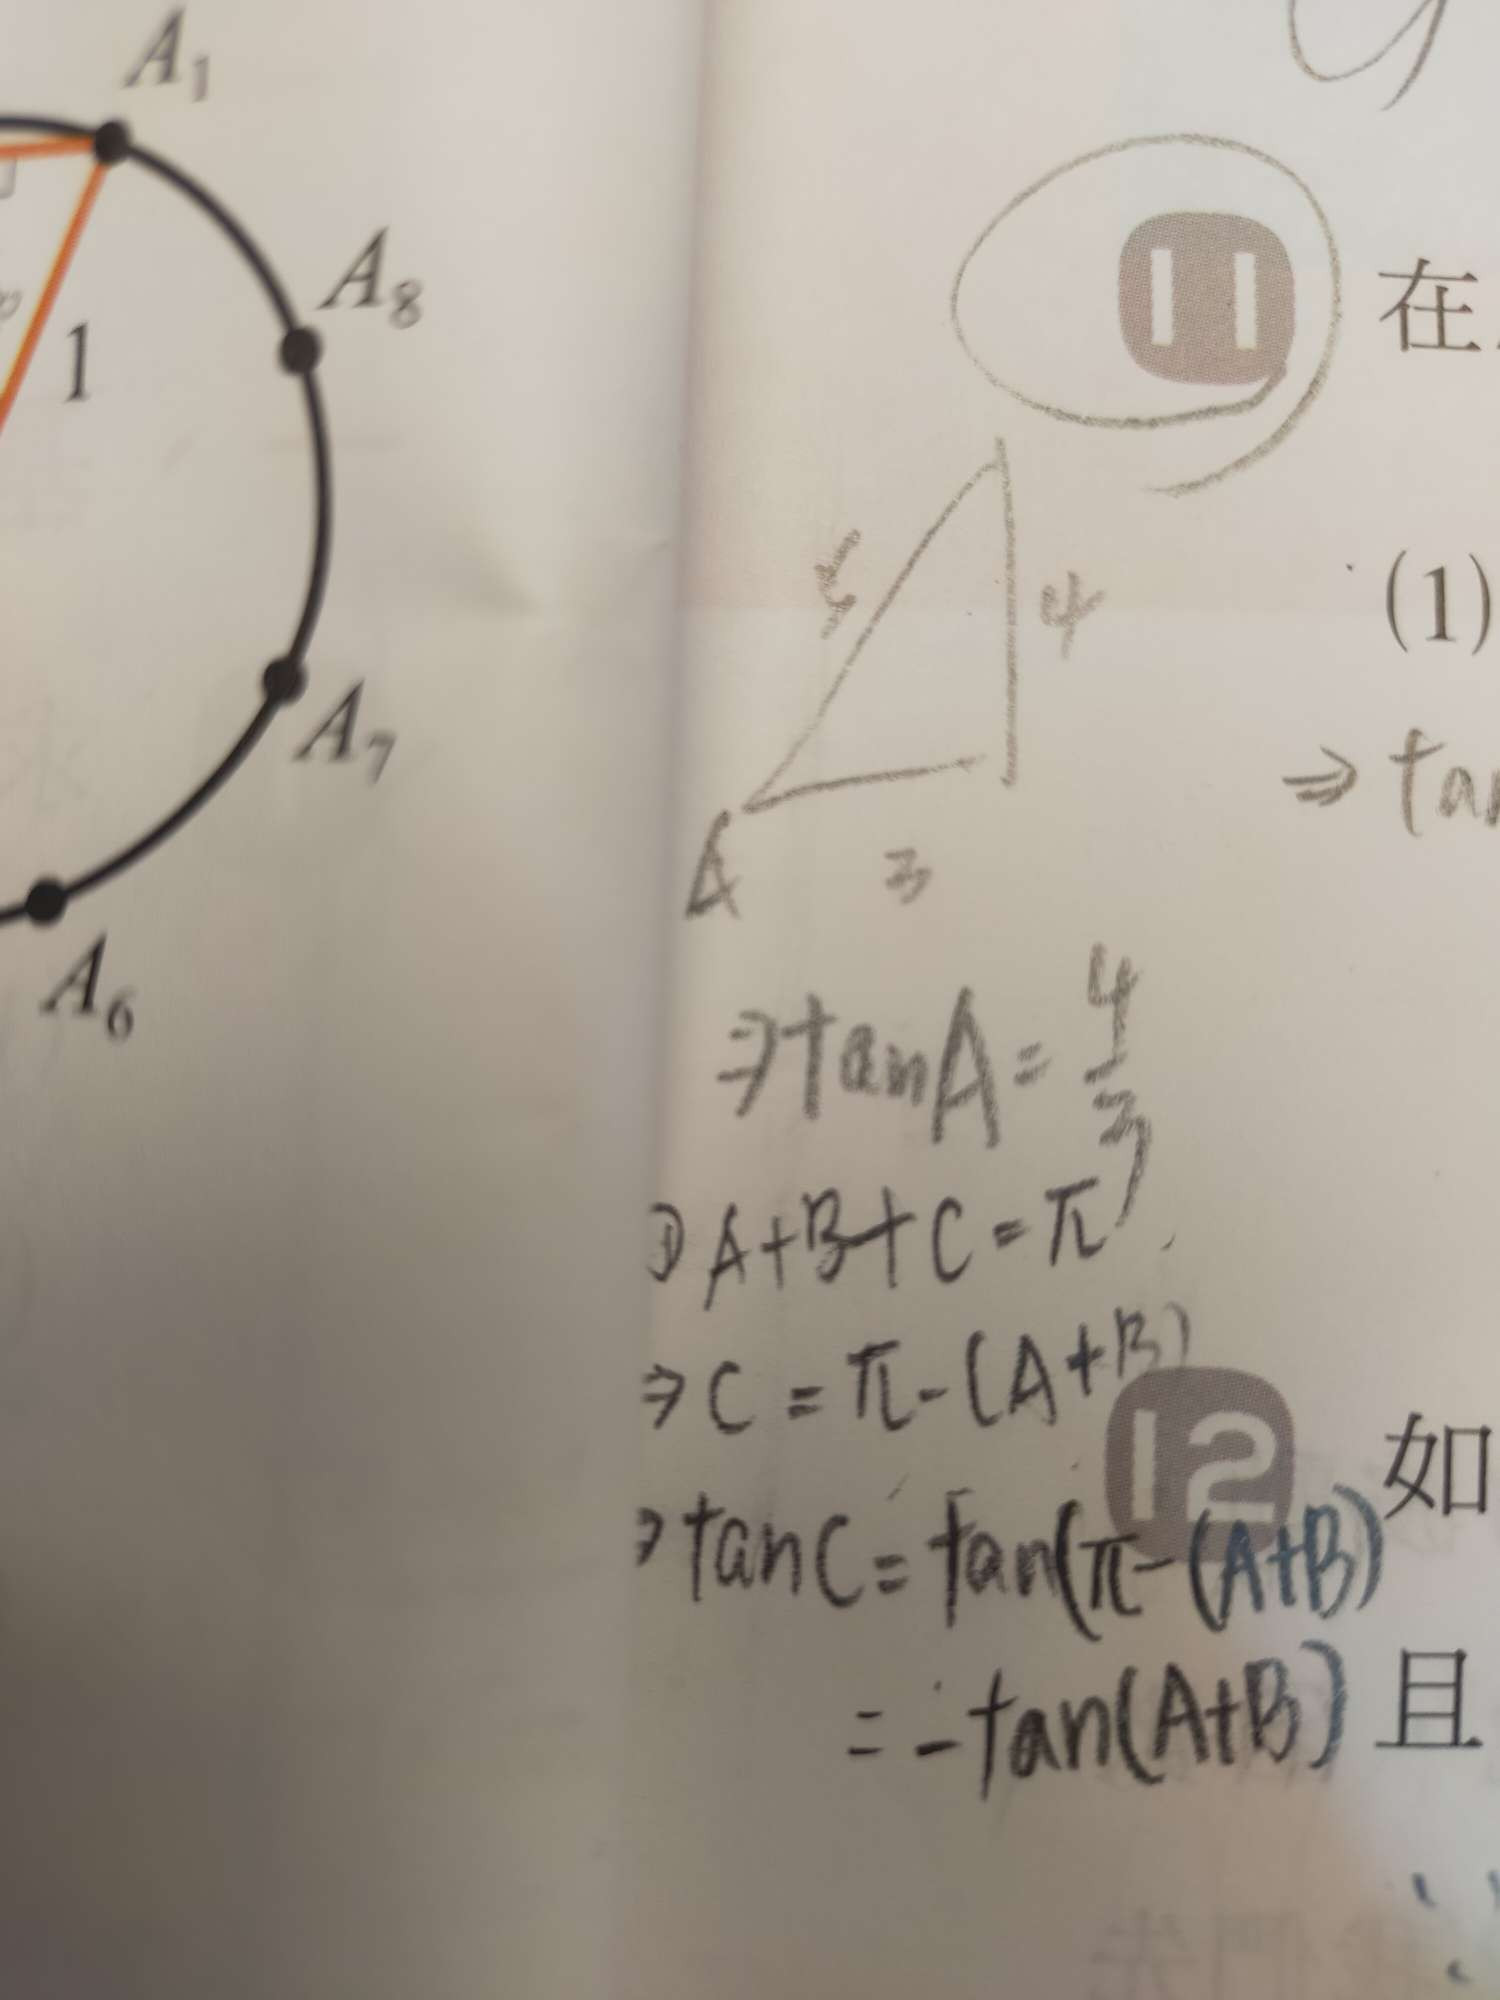 A₁
A₈
1
A₇
A₆
11 在
5
4
(1)
A
3
⇒ tan
⇒ tanA = 4/3
① A+B+C = π
⇒ C = π-(A+B)
12 如
⇒ tanC = tan(π-(A+B)
= -tan(A+B)
且